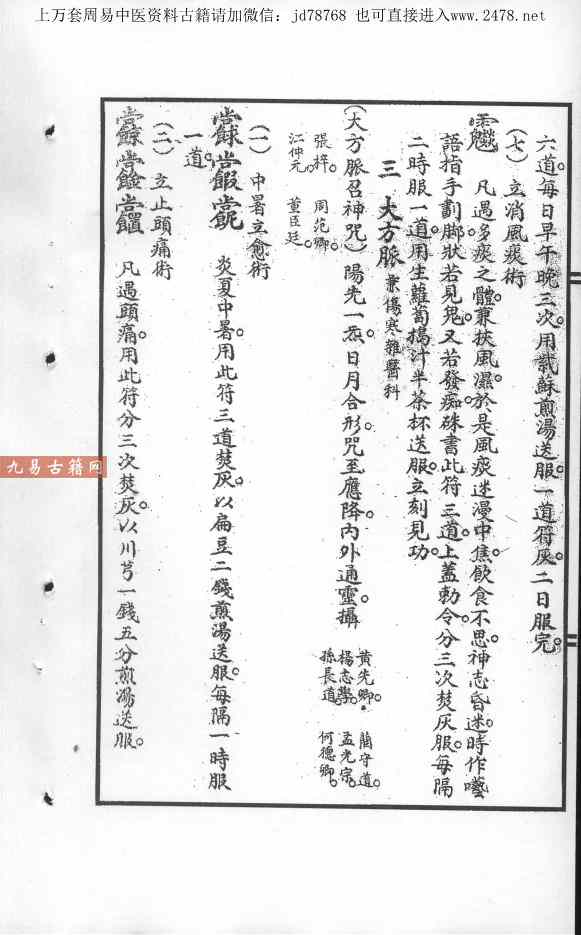 上万套周易中医资料古籍请加微信：jd78768 也可直接进入www.2478.net
六道。每日早午晚三次。用紫蘇煎湯送服一道符灰。二日服完。
（七）立消風痰術
凡遇多痰之體。兼挾風濕。於是風痰迷漫中焦。飲食不思。神志昏迷。時作囈
語。指手劃脚。狀若見鬼。又若發痴。硃書此符三道。上蓋勅令。分三次焚灰服。每隔
二時服一道。用生蘿蔔搗汁半茶杯送服。立刻見功。
三 大方脈 兼傷寒雜醫科
（大方脈召神咒）陽先一炁。日月合形。咒至應降。內外通靈。攝
黃先卿。 藺守道。
楊志學。 孟光宗。
孫長道。 何德卿。
張梓。 周范卿。
江仲元。 董臣廷。
（一）中暑立愈術
炎夏中暑。用此符三道焚灰。以扁豆二錢煎湯送服。每隔一時服
一道。
（二）立止頭痛術
凡遇頭痛。用此符分三次焚灰。以川芎一錢五分煎湯送服。
九易古籍网